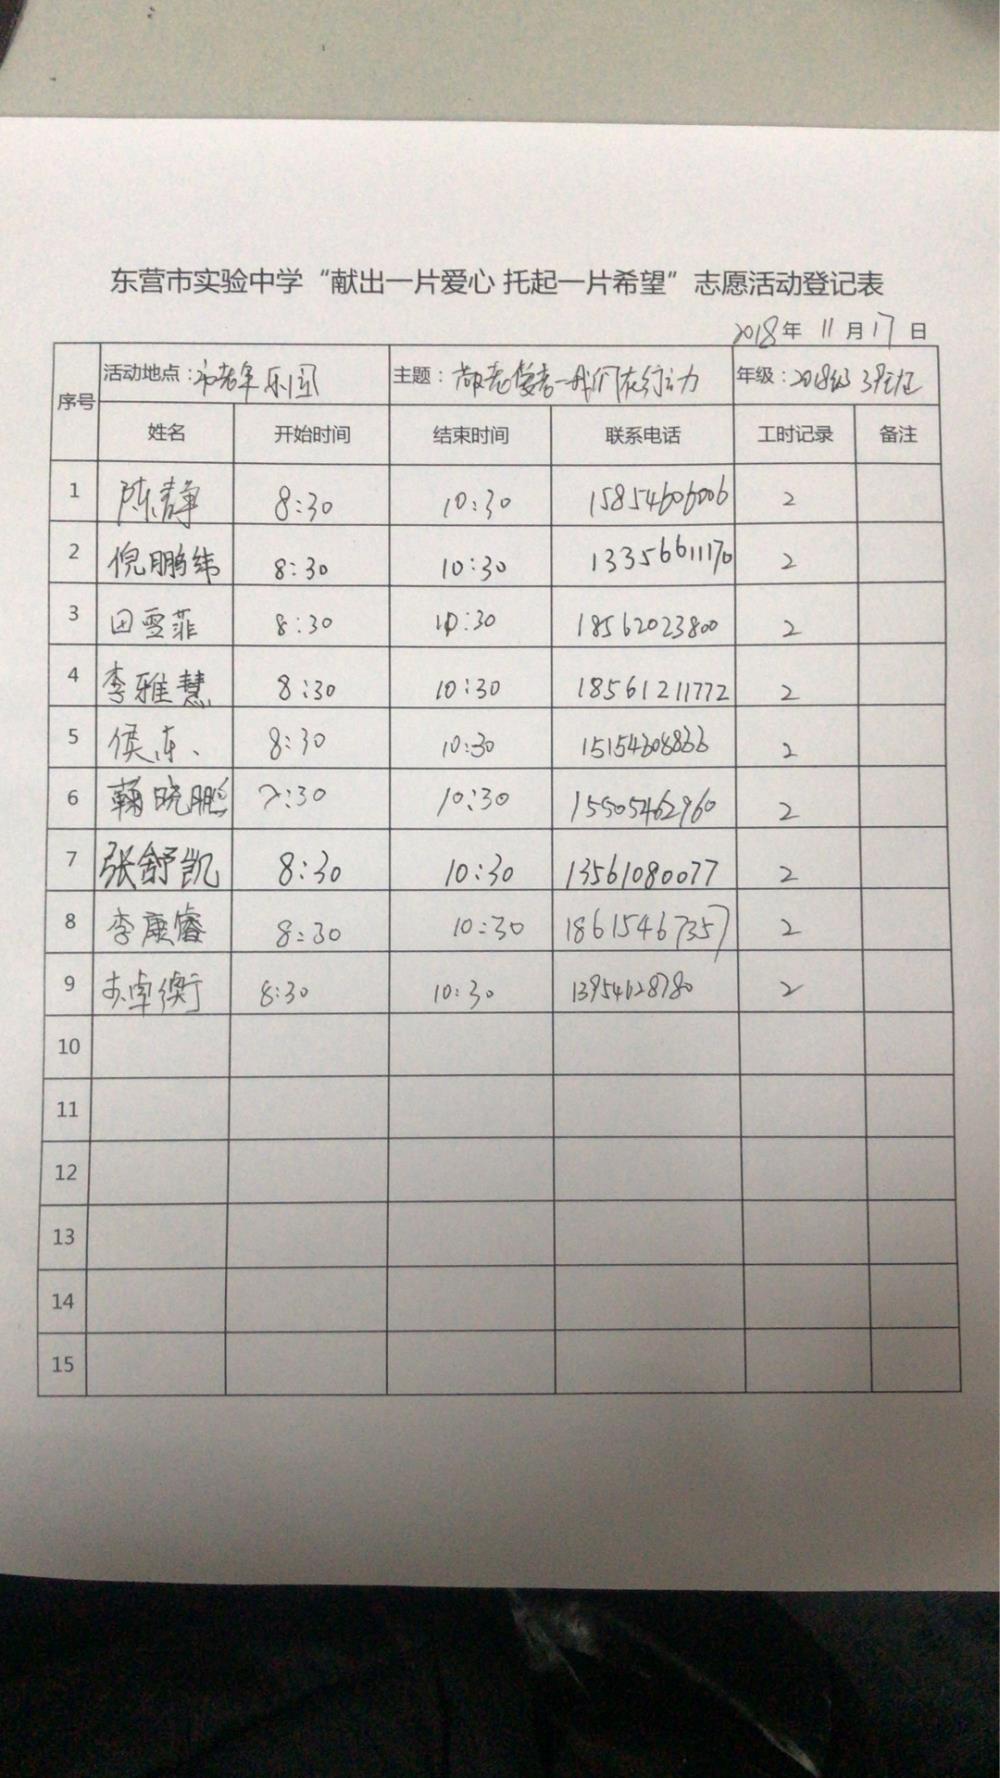 东营市实验中学“献出一片爱心 托起一片希望”志愿活动登记表
2018年 11月17日
序号 活动地点：市老年乐园 主题：敬老爱老一我们在行动 年级：2018级
姓名 开始时间 结束时间 联系电话 工时记录 备注
1 陈静 8:30 10:30 15854606006 2
2 倪鹏纬 8:30 10:30 13356611170 2
3 田雪菲 8:30 10:30 18562023800 2
4 李雅慧 8:30 10:30 18561211772 2
5 侯东 8:30 10:30 2
6 晓鹏 7:30 10:30 15505462960 2
7 张舒凯 8:30 10:30 13561080077 2
8 李康睿 8:30 10:30 18615467357 2
9 8:30 10:30 13954628780 2
10
11
12
13
14
15